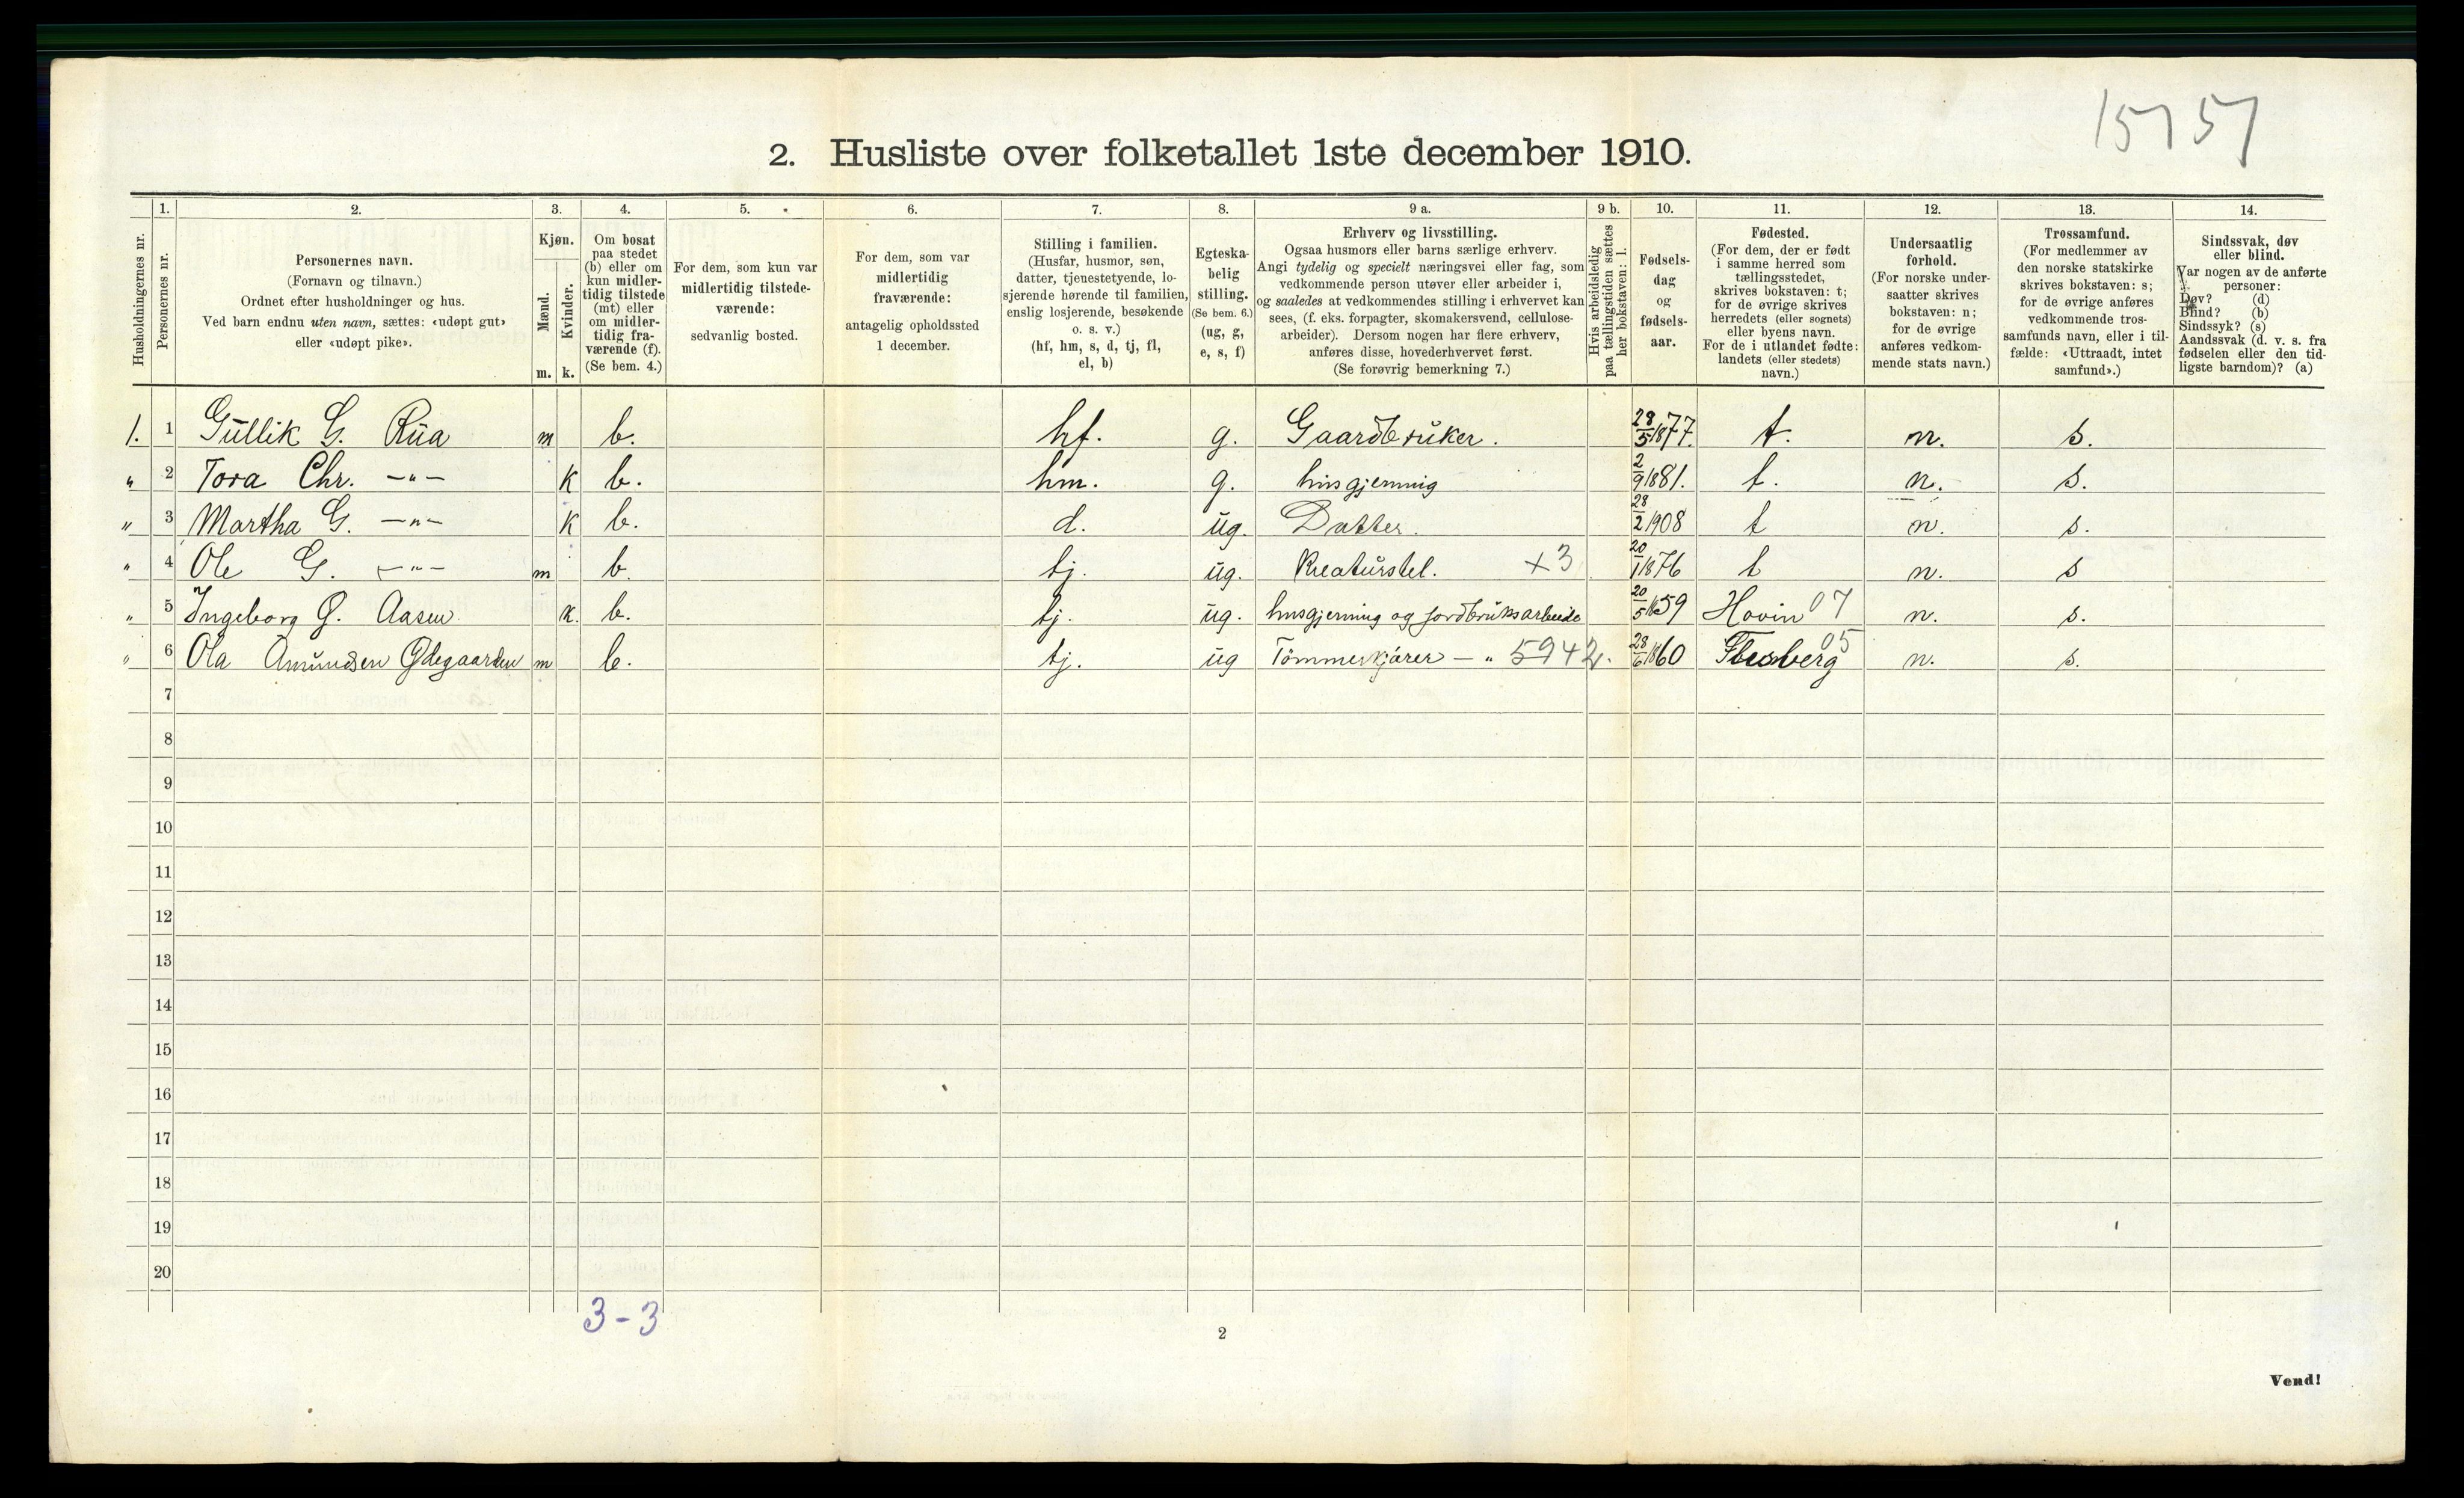 15757
2. Husliste over folketallet 1ste december 1910.
Husholdningernes nr.
1.
Personernes nr.
2.
Personernes navn.
(Fornavn og tilnavn.)
Ordnet efter husholdninger og hus.
Ved barn endnu uten navn, sættes: «udøpt gut»
eller «udøpt pike».
3.
Kjøn.
Mænd.
Kvinder.
m. k.
4.
Om bosat
paa stedet
(b) eller om
kun midler-
tidig tilstede
(mt) eller
om midler-
tidig fra-
værende (f).
(Se bem. 4.)
5.
For dem, som kun var
midlertidig tilstede-
værende:
sedvanlig bosted.
6.
For dem, som var
midlertidig
fraværende:
antagelig opholdssted
1 december.
7.
Stilling i familien.
(Husfar, husmor, søn,
datter, tjenestetyende, lo-
sjerende hørende til familien,
enslig losjerende, besøkende
o. s. v.)
(hf, hm, s, d, tj, fl,
el, b)
8.
Egteska-
belig
stilling.
(Se bem. 6.)
(ug, g,
e, s, f)
9 a.
Erhverv og livsstilling.
Ogsaa husmors eller barns særlige erhverv.
Angi tydelig og specielt næringsvei eller fag, som
vedkommende person utøver eller arbeider i,
og saaledes at vedkommendes stilling i erhvervet kan
sees, (f. eks. forpagter, skomakersvend, cellulose-
arbeider). Dersom nogen har flere erhverv,
anføres disse, hovederhvervet først.
(Se forøvrig bemerkning 7.)
9 b.
Hvis arbeidsledig
paa tællingstiden sættes
her bokstaven: l.
10.
Fødsels-
dag
og
fødsels-
aar.
11.
Fødested.
(For dem, der er født
i samme herred som
tællingsstedet,
skrives bokstaven: t;
for de øvrige skrives
herredets (eller sognets)
eller byens navn.
For de i utlandet fødte:
landets (eller stedets)
navn.)
12.
Undersaatlig
forhold.
(For norske under-
saatter skrives
bokstaven: n;
for de øvrige
anføres vedkom-
mende stats navn.)
13.
Trossamfund.
(For medlemmer av
den norske statskirke
skrives bokstaven: s;
for de øvrige anføres
vedkommende tros-
samfunds navn, eller i til-
fælde: «Uttraadt, intet
samfund».)
14.
Sindssvak, døv
eller blind.
Var nogen av de anførte
personer:
Døv? (d)
Blind? (b)
Sindssyk? (s)
Aandssvak (d. v. s. fra
fødselen eller den tid-
ligste barndom)? (a)
1. 1 Gullik G. Rua m b. hf. g. Gaardbruker. 28/5 1877. t. n. s.
" 2 Tora Chr. —"— k b. hm. g. husgjerning 2/9 1881. t. n. s.
" 3 Martha G. —"— k b. d. ug. Datter. 28/2 1908 t n. s.
" 4 Ole G. —"— m b. tj. ug. Kreaturstel. x3 20/1 1876 t n. s
" 5 Ingeborg G. Aasen k. b. tj. ug. husgjerning og jordbruksarbeide 20/5 1859 Hovin 07 n. s.
" 6 Ola Amundsen Ødegaarden m b. tj. ug Tømmerkjører — " 5942. 28/6 1860 Flesberg 05 n. s.
7
8
9
10
11
12
13
14
15
16
17
18
19
20
3-3
2
Vend!